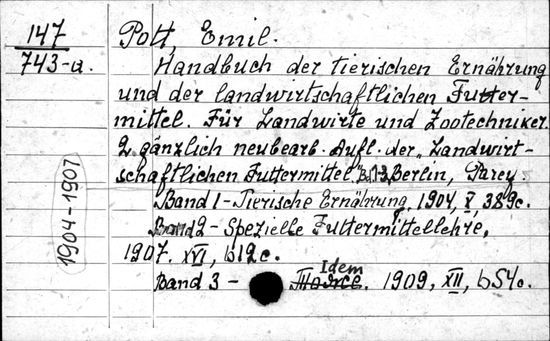 147
743-a.
1904-1907
Pott, Emil.
Handbuch der tierischen Ernährung
und der landwirtschaftlichen Futter-
mittel. Für Landwirte und Zootechniker.
2. gänzlich neubearb. Aufl. der „Landwirt-
schaftlichen Futtermittel. Bd.1-3, Berlin, Parey.
Band 1 - Tierische Ernährung, 1904, X, 389c.
Band 2 - Spezielle Futtermittellehre,
1907. XVI, 612c.
Idem
Band 3 - 1909, XII, 654c.